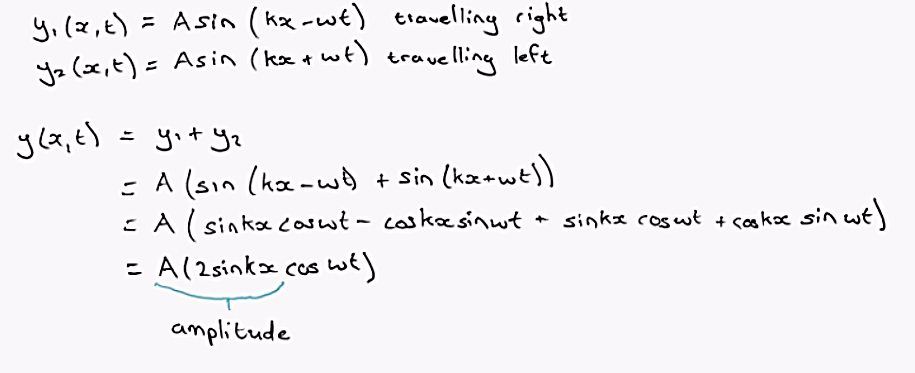 y₁(x,t) = A sin (kx - ωt) travelling right
y₂(x,t) = A sin (kx + ωt) travelling left
y(x,t) = y₁ + y₂
= A (sin (kx - ωt) + sin (kx + ωt))
= A ( sin kx cos ωt - cos kx sin ωt + sin kx cos ωt + cos kx sin ωt)
= A (2 sin kx cos ωt)
amplitude